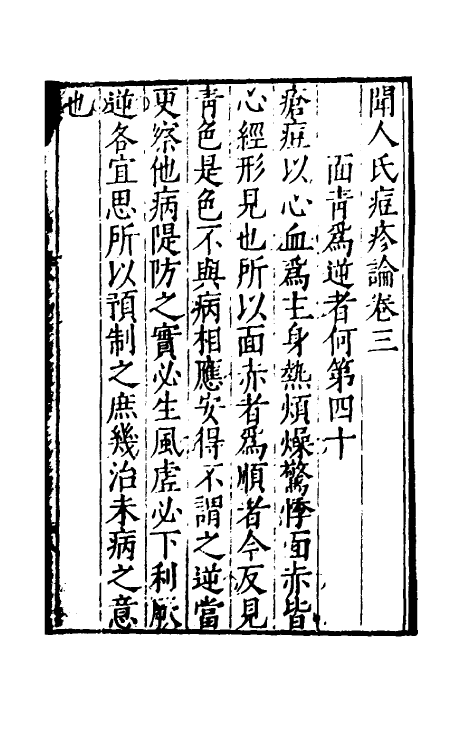 聞人氏痘疹論卷三
面青爲逆者何第四十
瘡痘以心血爲主身熱煩燥驚悸面赤皆
心經形見也所以面赤者爲順者今反見
青色是色不與病相應安得不謂之逆當
更察他病隄防之實必生風虛必下利厥
逆各宜思所以預制之庶幾治未病之意
也